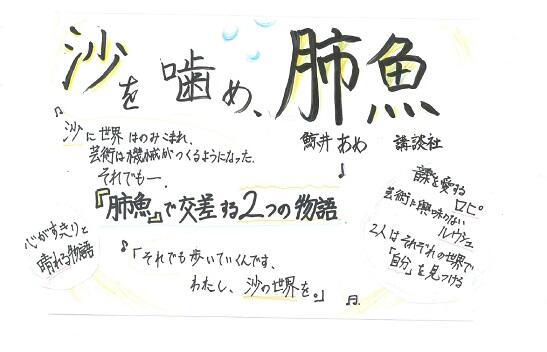 沙を噛め、肺魚
鯨井あめ 講談社
沙に世界はのみこまれ、
芸術は機械がつくるようになった。
それでも―.
『肺魚』で交差する2つの物語
心がすっきりと
晴れる物語
「それでも歩いていくんです、
わたし、沙の世界を。」
音楽を愛する
ロピ。
芸術に興味のない
ルウシュ
2人はそれぞれの世界で
「自分」を見つける